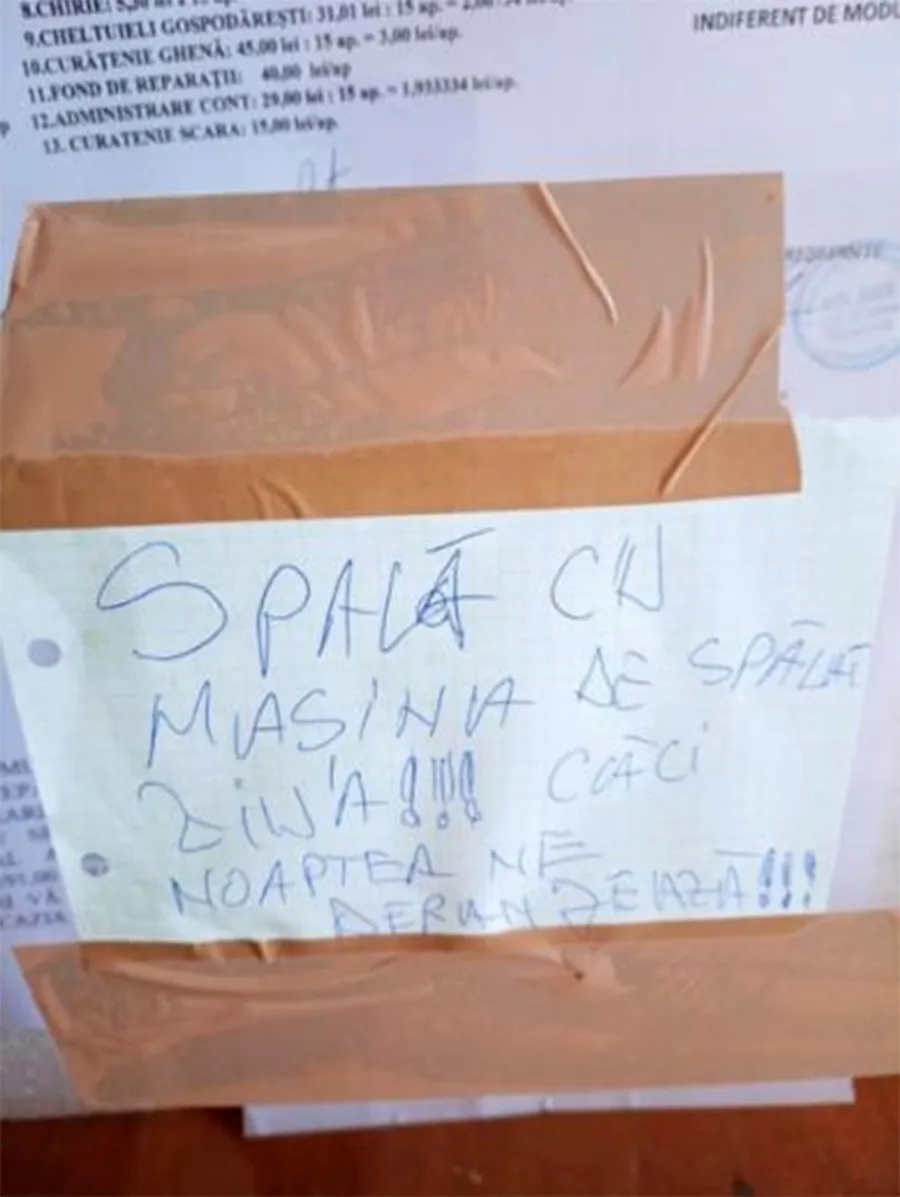 8.CHIRIE:
9.CHELTUIELI GOSPODĂREȘTI: 31,01 lei : 15 ap. =
10.CURĂȚENIE GHENĂ: 45,00 lei : 15 ap. = 3,00 lei/ap.
11.FOND DE REPARAȚII: 40,00 lei/ap
12.ADMINISTRARE CONT: 29,00 lei : 15 ap. = 1,933334 lei/ap.
13. CURATENIE SCARA: 15,00 lei/ap.
INDIFERENT DE MODU
SPALĂ CU
MASINA DE SPĂLAT
ZIUA!!!! CĂCI
NOAPTEA NE
DERANJEAZĂ!!!